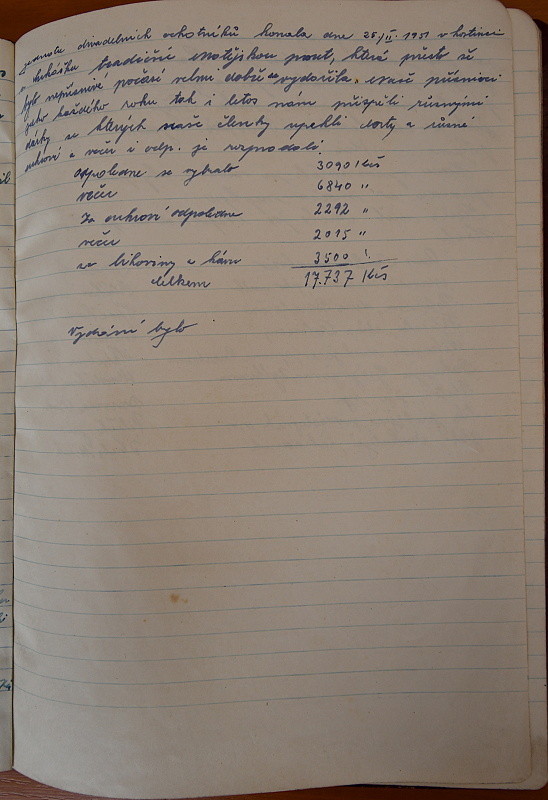 Jednota divadelních ochotníků konala dne 25/II. 1951 v hostinci
u tradiční pout, která přesto že
bylo nepříznivé počasí velmi dobře se vydařila. naše příznivci
jako každého roku tak i letos nám přispěli různými
dárky ze kterých naše členky upekli dorty a různé
cukroví a večer i odp. je rozprodali.
Odpoledne se vybralo 3090 Kčs
večer 6840 "
Za cukroví odpoledne 2292 "
večer 2015 "
za lihoviny a kávu 3500 "
celkem 17.737 Kčs
Vydání bylo